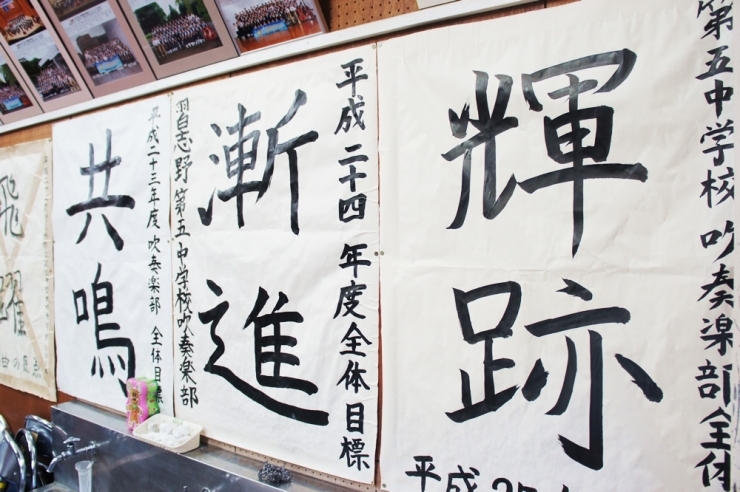 第五中学校 吹奏楽部全体
輝跡
平成25
平成二十四年度全体目標
漸進
習志野第五中学校吹奏楽部
平成二十三年度吹奏楽部 全体目標
共鳴
飛躍